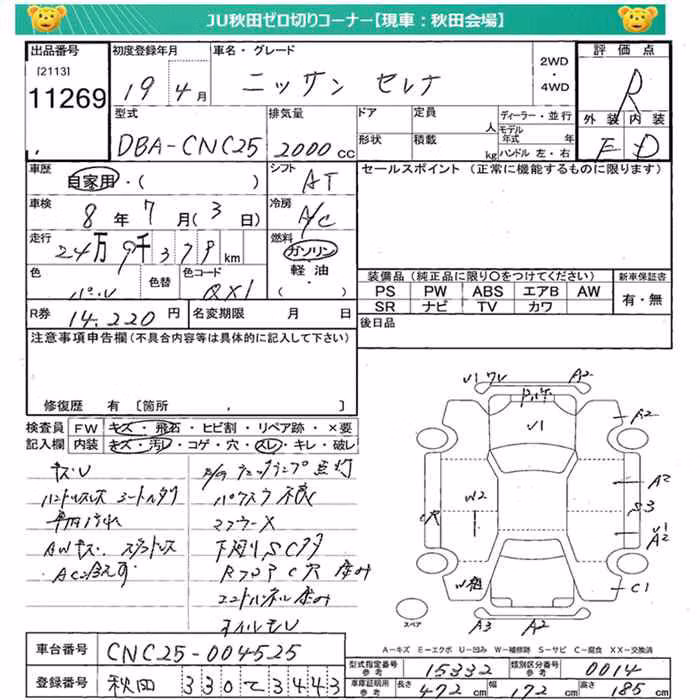 JU秋田ゼロ切りコーナー【現車：秋田会場】
出品番号 初度登録年月 車名・グレード 2WD・4WD 評価点
[2113]
11269 19年 4月 ニッサン セレナ R
型式 排気量 ドア 定員 人 ディーラー・並行 外装 内装
DBA-CNC25 2000cc 形状 積載 kg モデル年式 年 ハンドル 左・右 E D
車歴 自家用・( ) シフト AT セールスポイント (正常に機能するものに限ります)
車検 8年 7月(3日) 冷房 A/C
走行 24万9千379km 燃料 ガソリン 軽油・( )
色 パール 色替 色コード QX1 装備品 (純正品に限り○をつけてください) 新車保証書
PS PW ABS エアB AW 有・無
SR ナビ TV カワ
R券 14,220円 名変期限 月 日 後日品
注意事項申告欄(不具合内容等は具体的に記入して下さい)
修復歴 有 [箇所 ]
検査員 FW キズ・飛石・ヒビ割・リペア跡・×要
記入欄 内装 キズ・汚レ・コゲ・穴・スレ・キレ・破レ
キズU
ハンドルスレ シートルタリ
専用汚れ
AWキズ
AC冷えず
チェックランプ点灯
パワスラ不良
マフラーX
下廻りSCサ
RフロアC穴
エンジン
オイルモレ
U1 A2
U1 A2
W2 A2
S3
C穴 U1
A2
C1
A3 A2
スペア
A-キズ E-エクボ U-凹み W-補修跡 S-サビ C-腐食 XX-交換済
車台番号 CNC25-004525
型式指定番号 参考 15332 類別区分番号 参考 0014
登録番号 秋田 330 て 3443
車庫証明 参考 長さ 472cm 幅 cm 高さ 85cm